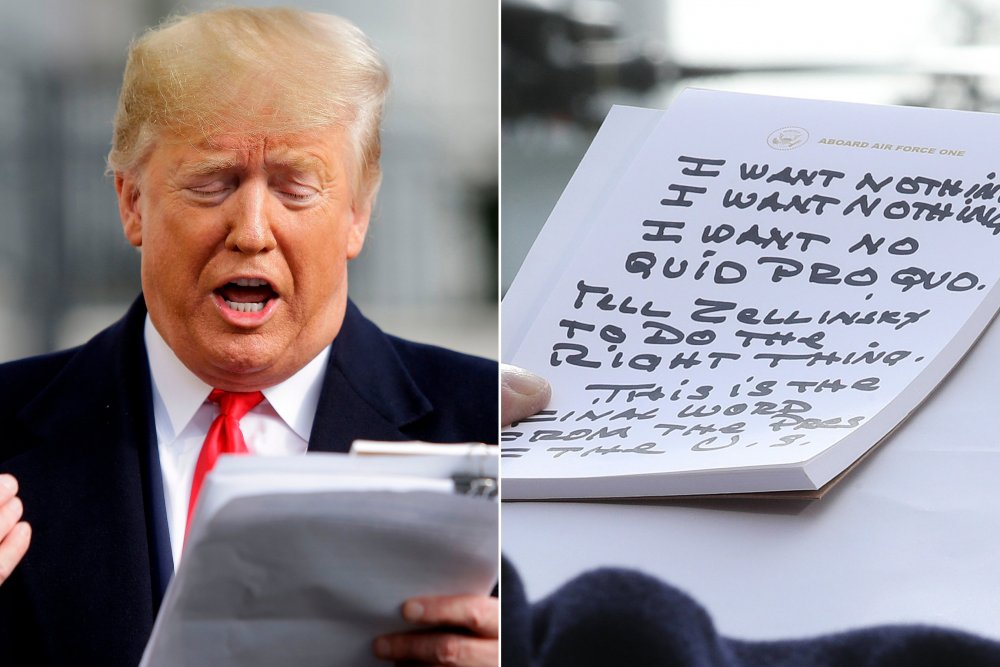 ABOARD AIR FORCE ONE
I WANT NOTHIN
I WANT NOTHING
I WANT NO
QUID PRO QUO.
TELL ZELLINSKY
TO DO THE
RIGHT THING.
THIS IS THE
FINAL WORD
FROM THE PRES
F THE U.S.